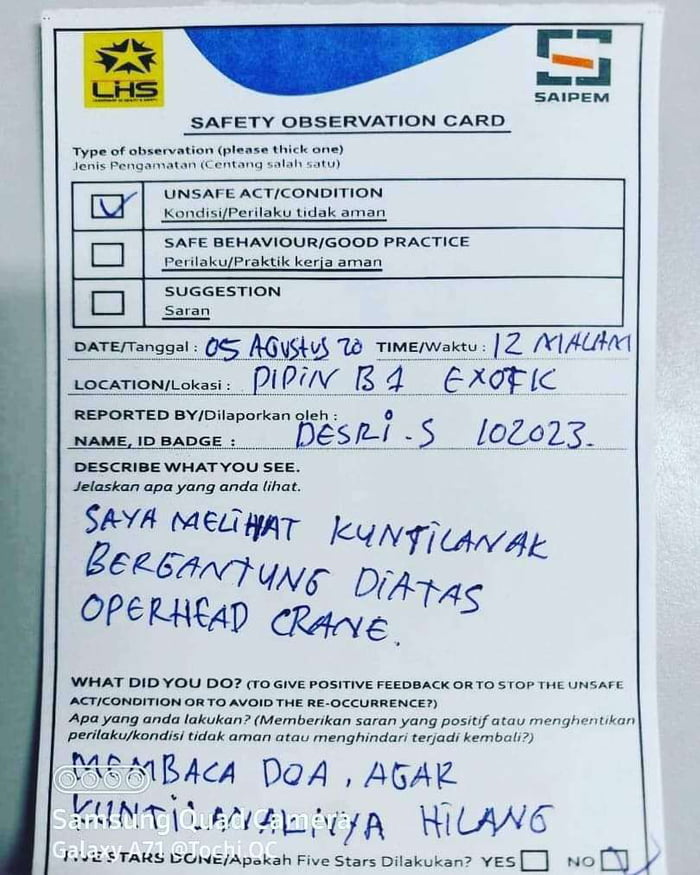 LHS
SAIPEM
SAFETY OBSERVATION CARD
Type of observation (please thick one)
Jenis Pengamatan (Centang salah satu)
UNSAFE ACT/CONDITION
Kondisi/Perilaku tidak aman
SAFE BEHAVIOUR/GOOD PRACTICE
Perilaku/Praktik kerja aman
SUGGESTION
Saran
DATE/Tanggal : 05 AGUSTUS 20 TIME/Waktu : 12 MALAM
LOCATION/Lokasi : PIPIN B1 EXOTIK
REPORTED BY/Dilaporkan oleh :
NAME, ID BADGE : DESRI.S 102023.
DESCRIBE WHAT YOU SEE.
Jelaskan apa yang anda lihat.
SAYA MELIHAT KUNTILANAK
BERGANTUNG DIATAS
OPERHEAD CRANE.
WHAT DID YOU DO? (TO GIVE POSITIVE FEEDBACK OR TO STOP THE UNSAFE
ACT/CONDITION OR TO AVOID THE RE-OCCURRENCE?)
Apa yang anda lakukan? (Memberikan saran yang positif atau menghentikan
perilaku/kondisi tidak aman atau menghindari terjadi kembali?)
MEMBACA DOA, AGAR
KUNTILANAKNYA HILANG
Samsung Quad Camera
Galaxy A71 @Tochi.QC
FIVE STARS DONE/Apakah Five Stars Dilakukan? YES NO